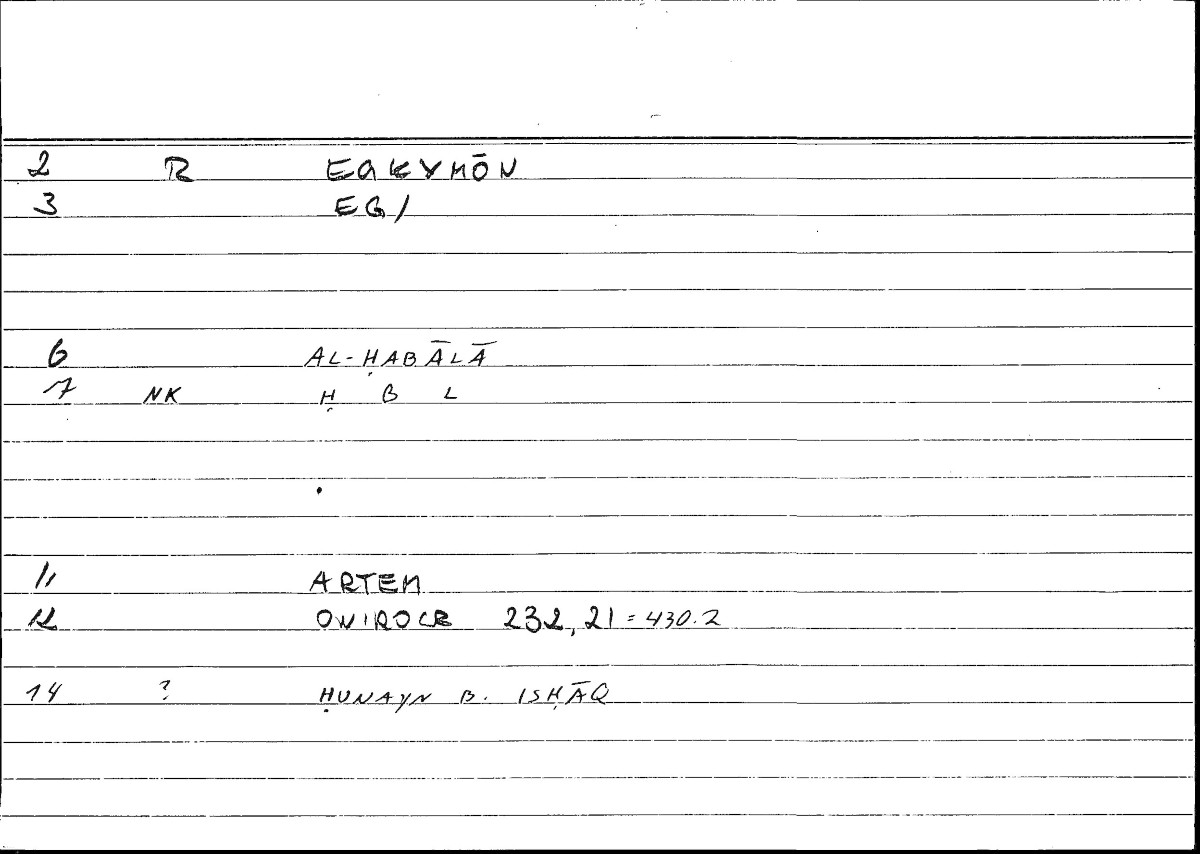 2 R EGKYMŌN
3 EG/
6 AL-ḤABĀLĀ
7 NK Ḥ B L
11 ARTEM
12 ONIROCR 232,21 = 430.2
14 ? ḤUNAYN B. ISḤĀQ